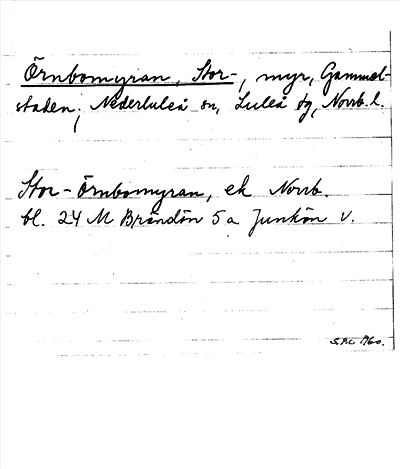 Örnbomyran, Stor-, myr, Gammel-
staden, Nederluleå sn, Luleå tg, Norrb. l.
Stor-Örnbomyran, ek Norrb.
bl. 24 M Brändön 5 a Junkön V.
1960.